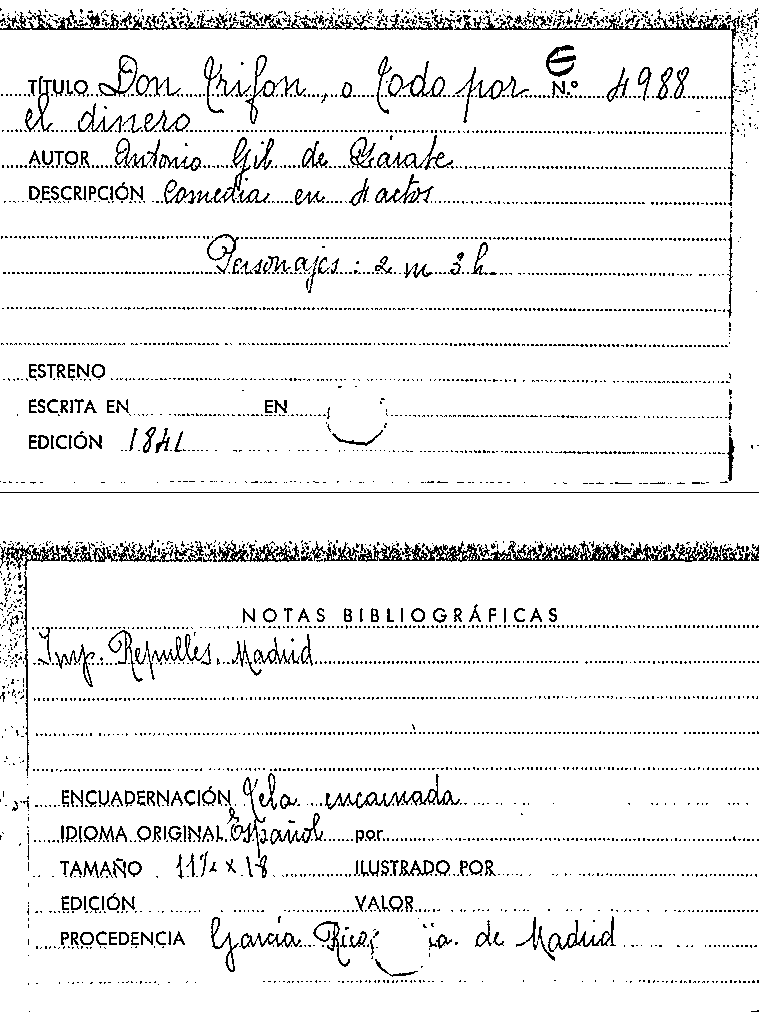 TÍTULO Don Trifon, o todo por N.º 4988
el dinero
AUTOR Antonio Gil de Zárate
DESCRIPCIÓN Comedia en 4 actos
Personajes: 2 m 3 h.
ESTRENO
ESCRITA EN EN
EDICIÓN 1841
NOTAS BIBLIOGRÁFICAS
Imp. Repullés. Madrid
ENCUADERNACIÓN Tela encarnada
IDIOMA ORIGINAL Español por
TAMAÑO 11½ x 18 ILUSTRADO POR
EDICIÓN VALOR
PROCEDENCIA García Rico de Madrid